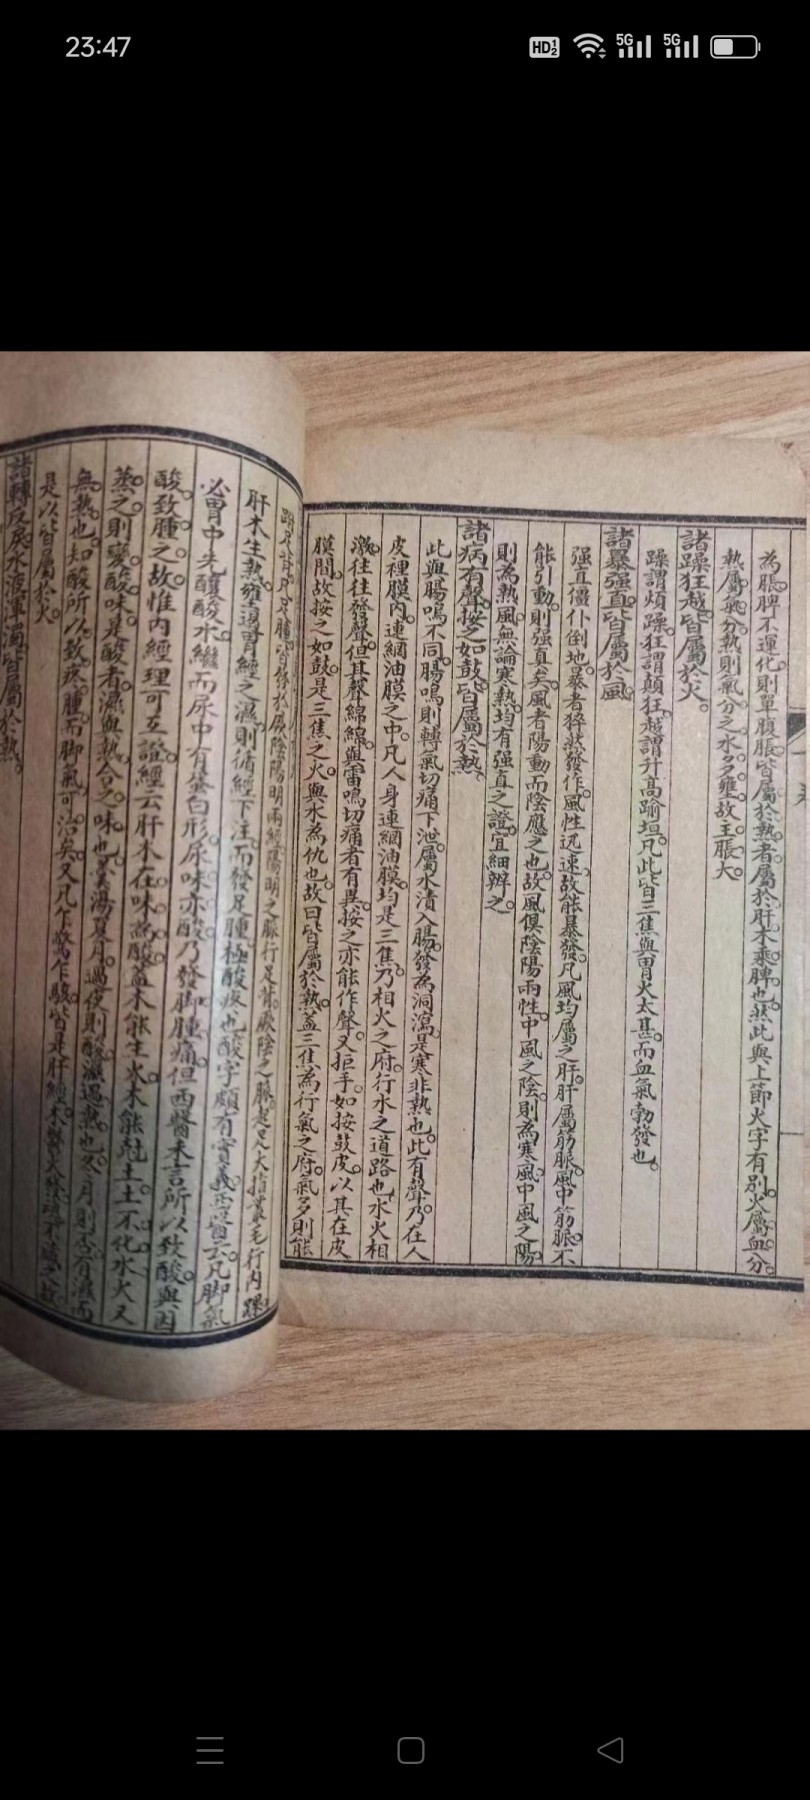 23:47
HD 1 2 5G 5G
為脹脾不運化則單腹脹皆屬於熱者屬於肝木乘脾也然此與上節火字有別火屬血分
熱屬氣分熱則氣分之水多壅故主脹大
諸躁狂越皆屬於火
躁謂煩躁狂謂顛狂越謂升高踰垣凡此皆三焦與胃火太甚而血氣勃發也
諸暴强直皆屬於風
强直僵仆倒地暴者猝然發作風性迅速故能暴發凡風均屬之肝肝屬筋脈風中筋脈不
能引動則强直矣風者陽動而陰應之也故風俱陰陽兩性中風之陰則為寒風中風之陽
則為熱風無論寒熱均有强直之證宜細辨之
諸病有聲按之如鼓皆屬於熱
此與腸鳴不同腸鳴則轉氣切痛下泄屬水漬入腸發為洞瀉是寒非熱也此有聲乃在人
皮裡膜內連網油膜之中凡人身連網油膜均是三焦乃相火之府行水之道路也水火相
激往往發聲但其聲綿綿與雷鳴切痛者有異按之亦能作聲又拒手如按鼓皮以其在皮
膜間故按之如鼓是三焦之火與水為仇也故曰皆屬於熱蓋三焦為行氣之府氣多則能
陽明之脈行足背厥陰之脈起足大指叢毛行內踝
肝木生熱壅遏胃經之濕則循經下注而發足腫極酸疼也酸字頗有實義西醫云凡脚氣
必胃中先釀酸水繼而尿中有蛋白形尿味亦酸乃發脚腫痛但西醫未言所以致酸與因
酸致腫之故惟內經理可互證經云肝木在味為酸蓋木能生火木能尅土土不化水火又
蒸之則變酸味是酸者濕與熱合之味也羹湯夏月過夜則酸濕遇熱也冬月則否有濕而
無熱也知酸所以致疼腫而脚氣可治矣又凡乍驚乍駭皆是肝經木
是以皆屬於火
諸轉反戾水液渾濁皆屬於熱